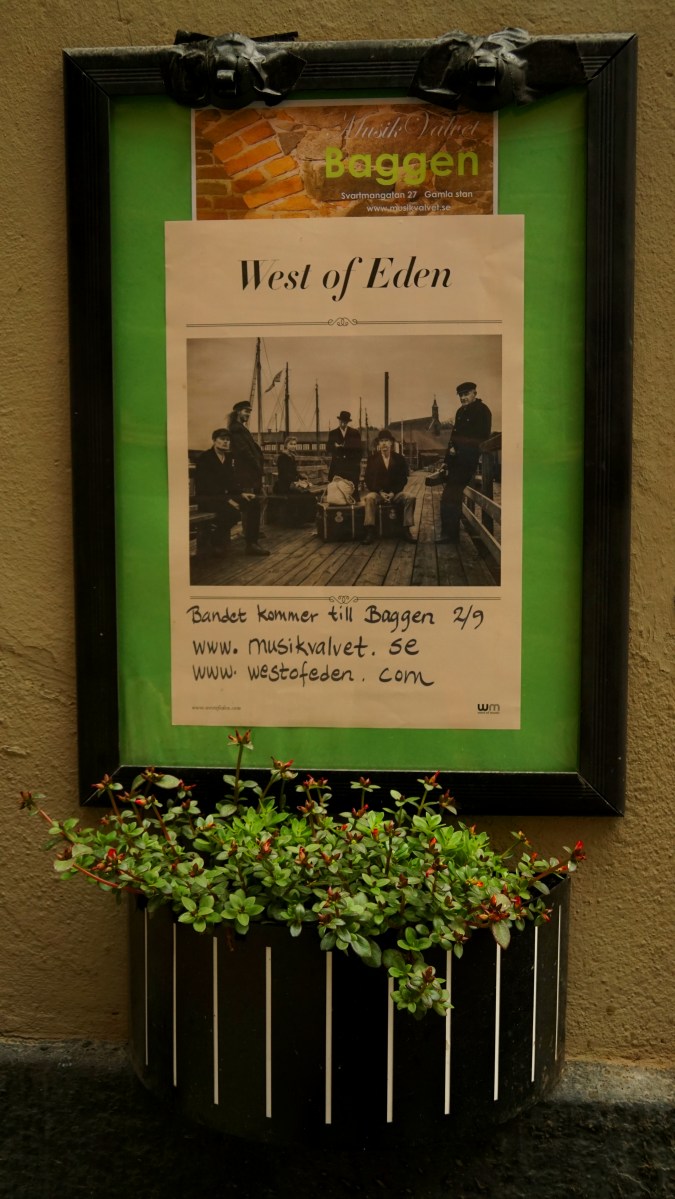 Musik Valvet
Baggen
Svartmangatan 27 Gamla stan
www.musikvalvet.se
West of Eden
Bandet kommer till Baggen 2/9
www.musikvalvet.se
www.westofeden.com
wm